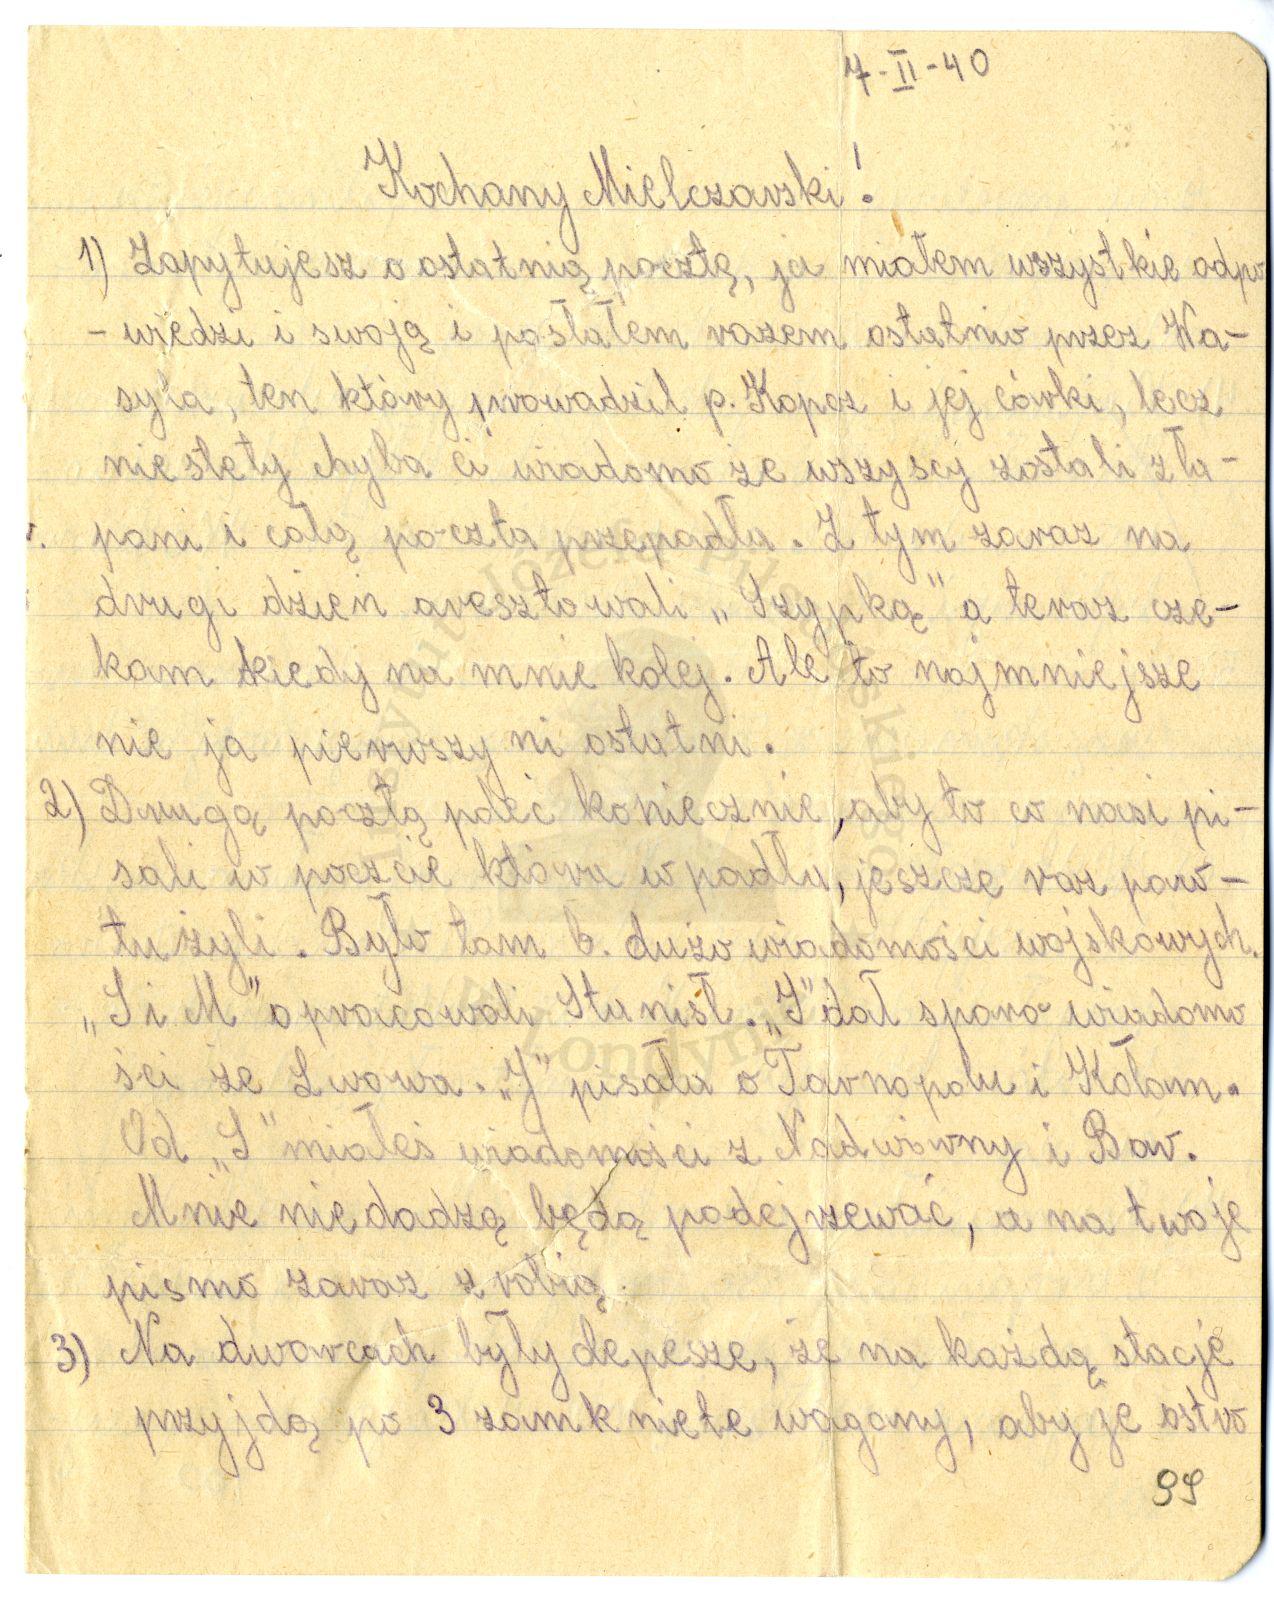 7-II-40
Kochany Mielczarski!
1) Zapytujesz o ostatnią pocztę, ja miałem wszystkie odpo
- wiedzi i swoją i posłałem razem ostatnio przez Wa-
syla, ten który prowadził p. Kopcz i jej córki, lecz
niestety chyba ci wiadomo że wszyscy zostali zła-
pani i całą poczta przepadła. Z tym zaraz na
drugi dzień aresztowali „Szypką" a teraz cze-
kam kiedy na mnie kolej. Ale to najmniejsze
nie ja pierwszy ni ostatni.
2) Drugą pocztą poleć koniecznie, aby to co nasi pi-
sali w poczcie która wpadła, jeszcze raz pow-
tużyli. Było tam b. dużo wiadomości wojskowych.
„S i M" opracowali Stanisł. „S" dał sporo wiadomo
ści ze Lwowa. „J" pisała o Tarnopolu i Kołom.
Od „S" miałeś wiadomości z Nadwórny i Bar.
Mnie niedadzą będą podejrzewać, a na twoje
pismo zaraz zrobią.
3) Na dworcach były depesze, że na każdą stacje
przyjdą po 3 zamkniete wagony, aby je ostro
99
Instytut Józefa Piłsudskiego
w Londynie